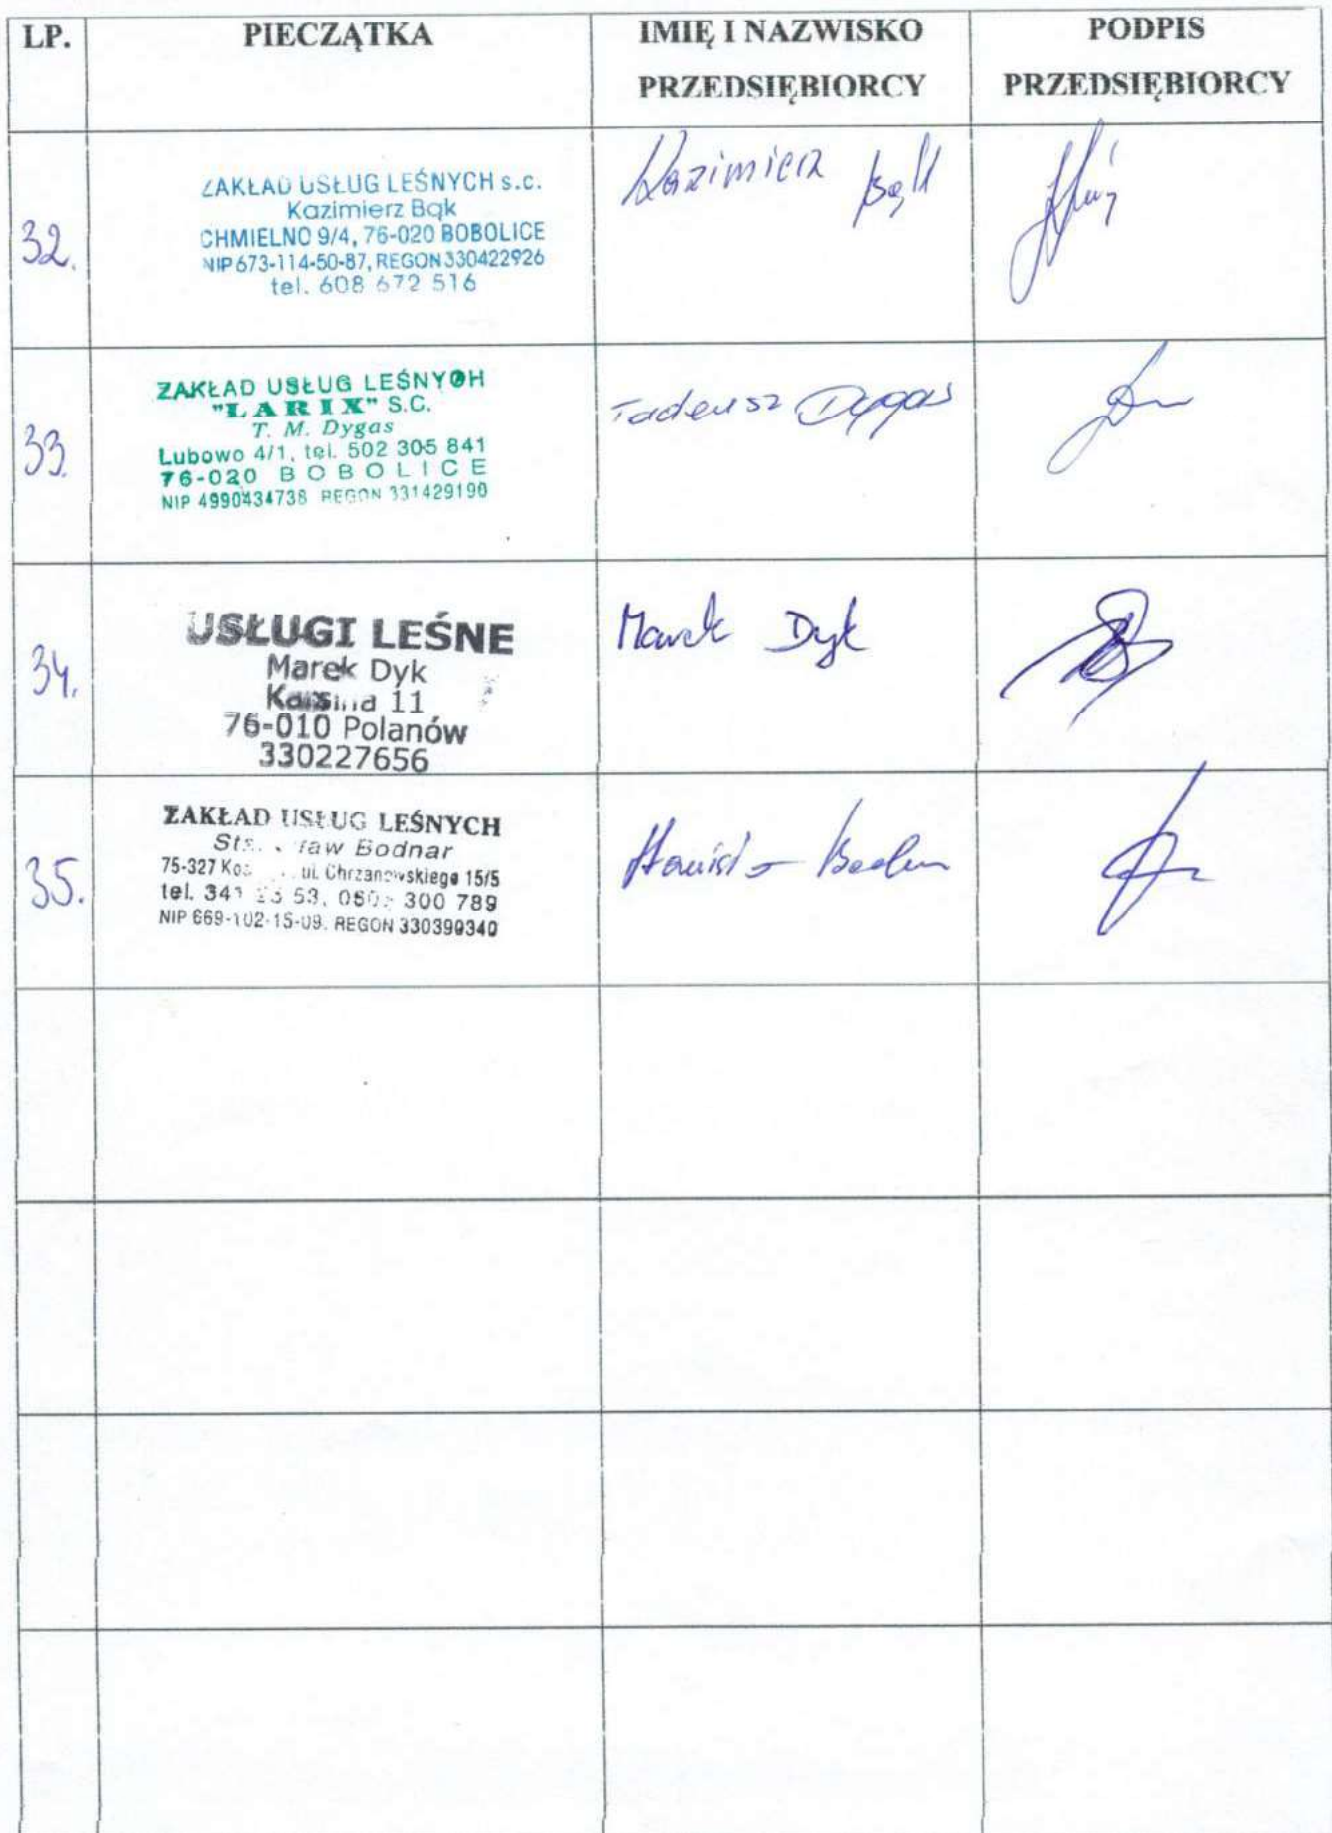 LP.
PIECZĄTKA
IMIĘ I NAZWISKO
PRZEDSIĘBIORCY
PODPIS
PRZEDSIĘBIORCY
32.
ZAKŁAD USŁUG LEŚNYCH s.c.
Kazimierz Bąk
CHMIELNO 9/4, 76-020 BOBOLICE
NIP 673-114-50-87, REGON 330422926
tel. 608 672 516
Kazimierz Bąk
33.
ZAKŁAD USŁUG LEŚNYCH
"LARIX" S.C.
T. M. Dygas
Lubowo 4/1, tel. 502 305 841
76-020 BOBOLICE
NIP 4990434738 REGON 331429190
Tadeusz Dygas
34.
USŁUGI LEŚNE
Marek Dyk
11
76-010 Polanów
330227656
Marek Dyk
35.
ZAKŁAD USŁUG LEŚNYCH
Bodnar
75-327 ul. Chrzanowskiego 15/5
tel. 341 53, 300 789
NIP 669-102-15-09. REGON 330390340